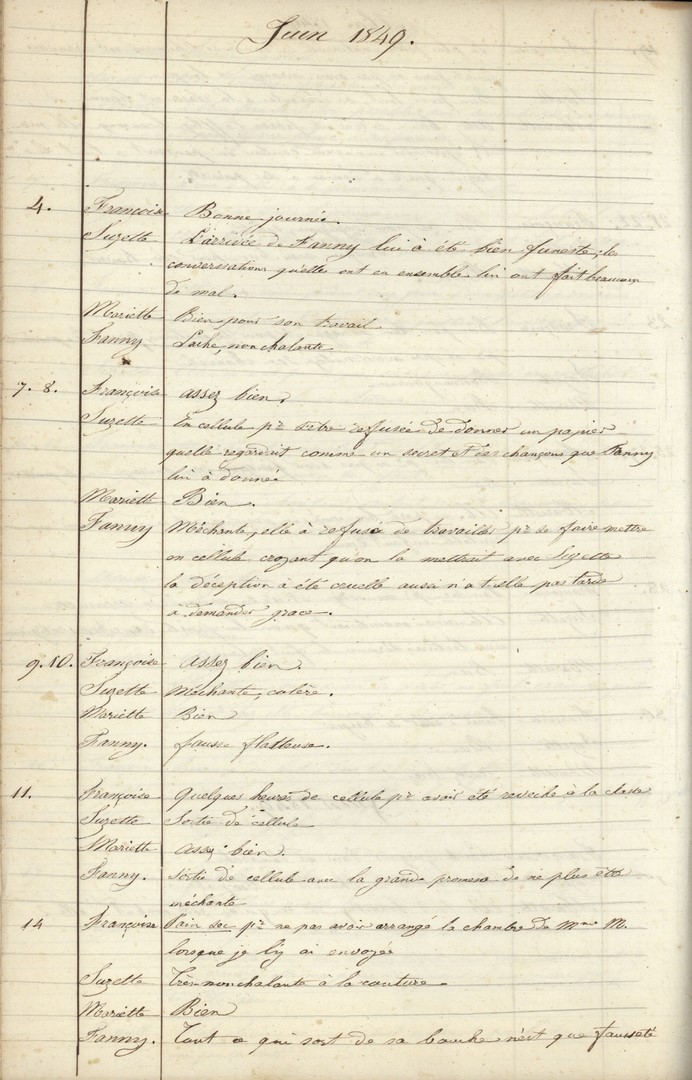 Juin 1849.
4. Françoise Bonne journée.
Suzette L'arrivée de Fanny lui à été bien funeste, les
conversations qu'elles ont eu ensemble lui ont fait beaucoup
de mal.
Mariette Bien pour son travail
Fanny Lache, nonchalante
7. 8. Françoise assez bien.
Suzette En cellule pr s'être refusée de donner un papier
quelle regardait comme un secret et des chansons que Fanny
lui à donné
Mariett Bien.
Fanny Méchante, elle à refusé de travailler pr se faire mettre
en cellule croyant qu'on la mettrait avec Suzette
la déception à été cruelle aussi n'a t'elle pas tardé
à demander grace.
9. 10. Françoise assez bien.
Suzette Méchante, colère.
Mariette Bien
Fanny. fausse flatteuse.
11. Françoise Quelques heures de cellule pr avoir été reveche à la classe
Suzette Sortie de cellule
Mariette Assez bien.
Fanny. Sortie de cellule avec la grande promesse de ne plus être
méchante
14 Françoise Pain sec pr ne pas avoir arrangé la chambre de Mme M.
lorsque je l'y ai envoyée
Suzette Très nonchalante à la couture.
Mariette Bien
Fanny. Tout ce qui sort de sa bouche n'est que fausseté